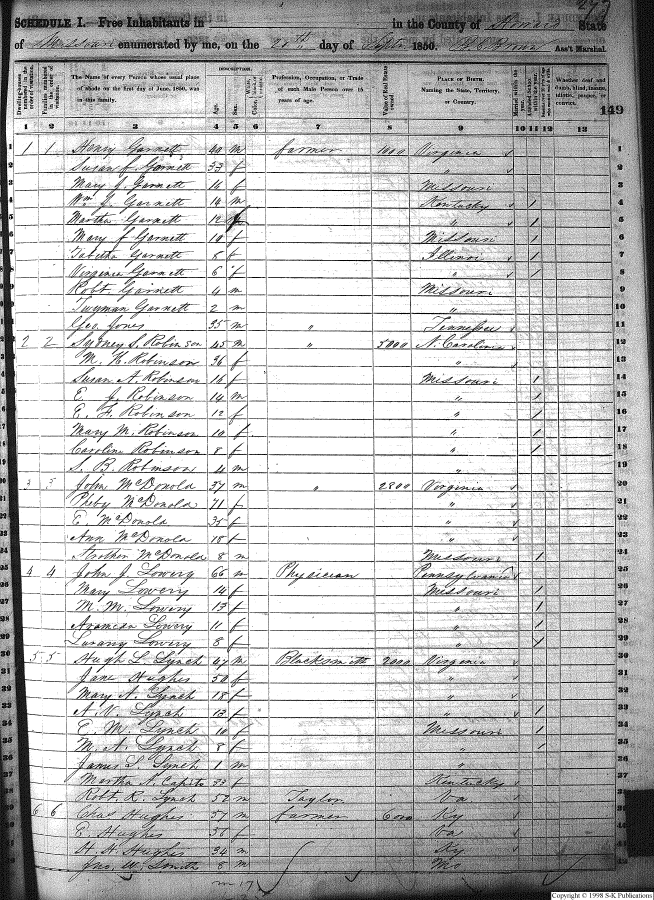 277
SCHEDULE I.—Free Inhabitants in in the County of Howard State
of Missouri enumerated by me, on the 20th day of Sept 1850. Ass't Marshal.
149
Dwelling-houses numbered in the order of visitation.
Families numbered in the order of visitation.
The Name of every Person whose usual place of abode on the first day of June, 1850, was in this family.
DESCRIPTION.
Age.
Sex.
Color,
Profession, Occupation, or Trade of each Male Person over 15 years of age.
Value of Real Estate owned
PLACE OF BIRTH.
Naming the State, Territory, or Country.
Married within the year.
Whether deaf and dumb, blind, insane, idiotic, pauper, or convict.
1 2 3 4 5 6 7 8 9 10 11 12 13
1 1 1 Henry Garnett 40 m farmer 1000 Virginia ✓ 1
2 Susan f Garnett 33 f " ✓ 2
3 Mary J. Garnett 16 f Missouri 3
4 Wm J. Garnett 14 m Kentucky ✓ 1 4
5 Martha Garnett 12 f " ✓ 1 5
6 Mary f Garnett 10 f Missouri 1 6
7 Tabitha Garnett 8 f Illinoi ✓ 1 7
8 Virginia Garnett 6 f " ✓ 1 8
9 Robt Garnett 4 m Missouri 9
10 Twyman Garnett 2 m " 10
11 Geo Jones 35 m " Tennessee ✓ 11
12 2 2 Sydney S. Robinson 45 m " 5000 N. Carolina ✓ 12
13 M. K. Robinson 36 f " ✓ 13
14 Susan A. Robinson 16 f Missouri 1 14
15 E. J. Robinson 14 m " 1 15
16 E. F. Robinson 12 f " 1 16
17 Mary M. Robinson 10 f " 1 17
18 Caroline Robinson 8 f " 1 18
19 S. B. Robinson 4 m " 19
20 3 3 John McDonold 37 m " 2800 Virginia ✓ 20
21 Pheby McDonold 71 f " ✓ 21
22 E. McDonold 35 f " ✓ 22
23 Ann McDonold 18 f " ✓ 23
24 Strother McDonold 8 m Missouri 1 24
25 4 4 John J. Lowery 66 m Physician Pennsylvania ✓ 25
26 Mary Lowery 14 f Missouri 1 26
27 M. M. Lowery 13 f " 1 27
28 Lowery 11 f " 1 28
29 Lowery 8 f " 1 29
30 5 5 Hugh L. Lynch 47 m Blacksmith 2000 Virginia ✓ 30
31 Jane Hughes 50 f " ✓ 31
32 Mary A. Lynch 18 f " ✓ 32
33 A. V. Lynch 13 f " ✓ 1 33
34 E. M. Lynch 10 f Missouri 1 34
35 M. A. Lynch 8 f " 1 35
36 James L. Lynch 1 m " 36
37 Martha N. 33 f Kentucky ✓ 37
38 Robt. R. Lynch 52 m Taylor Va ✓ 38
39 6 6 Chas Hughes 57 m farmer 6000 Ky ✓ 39
40 E. Hughes 56 f Va ✓ 40
41 H. H. Hughes 34 m Ky ✓ 41
42 Jno. W. Smith 8 m Mo 42
m 17
Copyright © 1998 S-K Publications